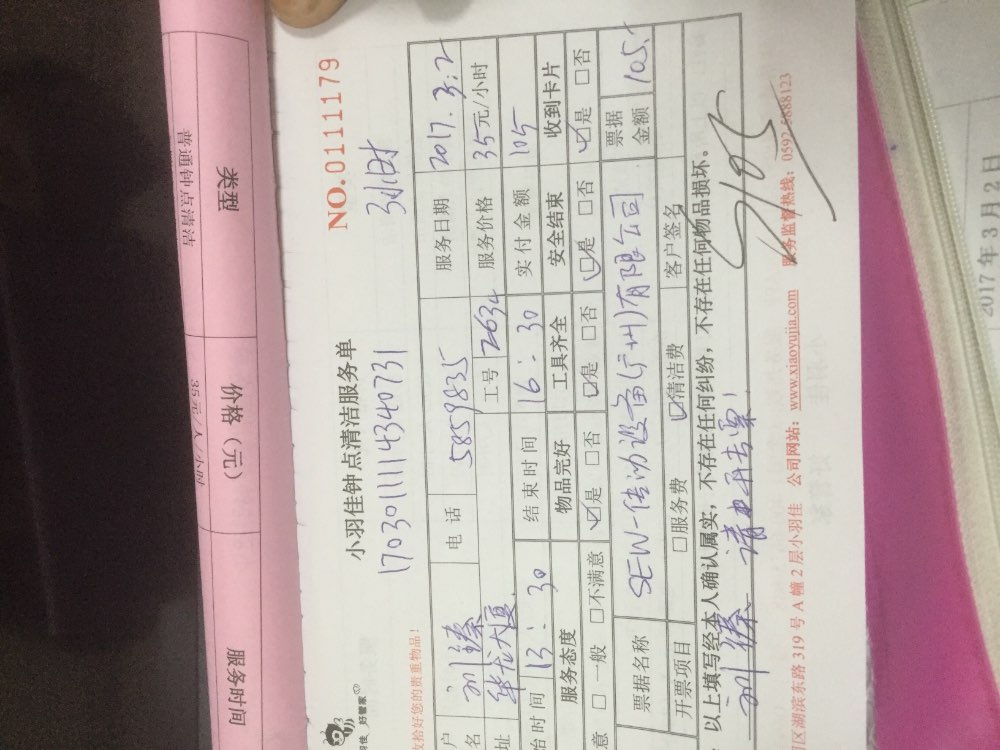 类型 价格（元） 服务时间
普通钟点清洁 35元/人/小时
NO.0111179
小羽佳钟点清洁服务单
170301114340731 3小时
收拾好您的贵重物品！
好管家
户 电话 5859835 服务日期 2017.3.2
名 工号 2634 服务价格 35元/小时
址 华龙大厦
始时间 13：30 结束时间 16：30 实付金额 105
服务态度 物品完好 工具齐全 安全结束 收到卡片
意 □一般 □不满意 ☑是 □否 ☑是 □否 ☑是 □否 ☑是 □否
票据名称 SEW-传动设备(广州)有限公司 票据金额 105.
开票项目 □服务费 ☑清洁费 客户签名
以上填写经本人确认属实，不存在任何纠纷，不存在任何物品损坏。
请开发票！
区湖滨东路 319 号 A 幢 2 层小羽佳 公司网站：www.xiaoyujia.com 服务监督热线：0592-5888123
2017年3月2日